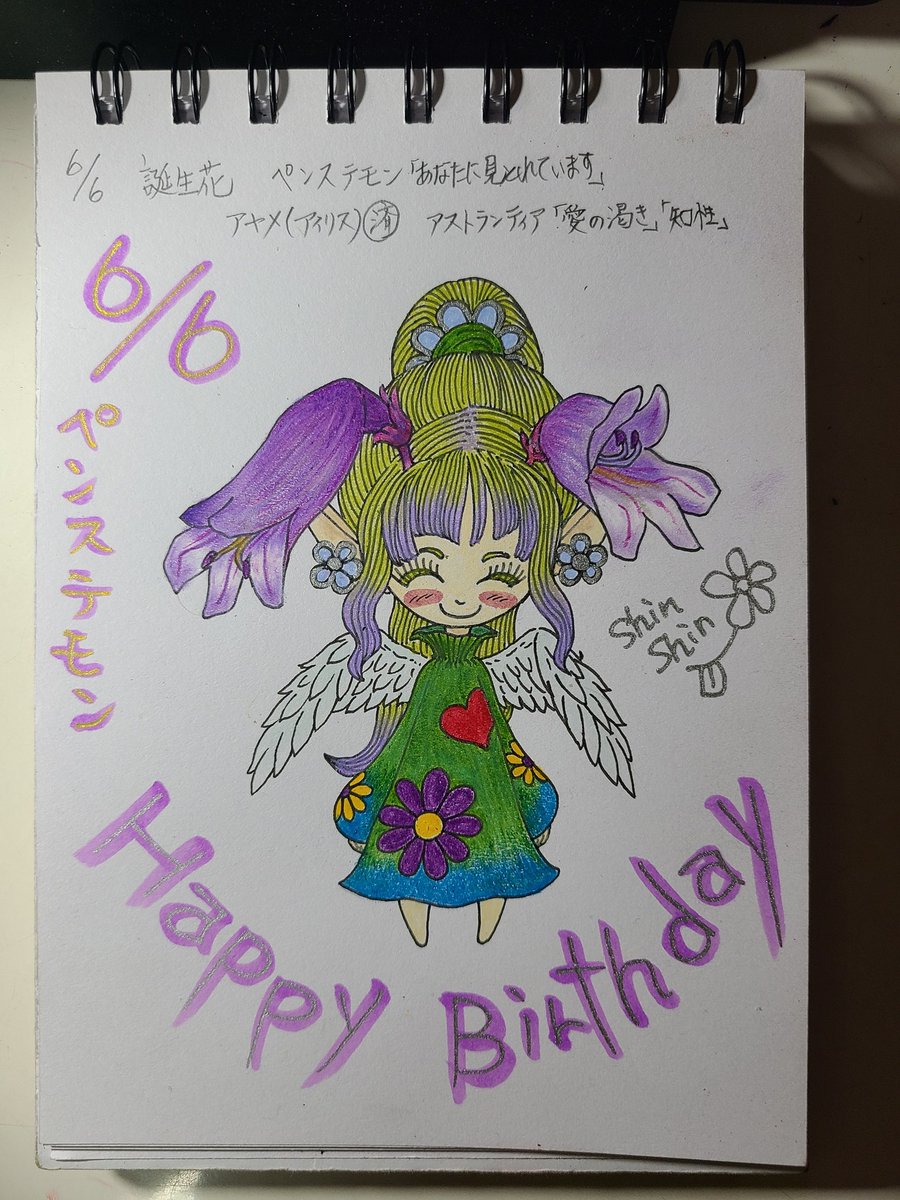 6/6 誕生花 ペンステモン「あなたに見とれています」
アヤメ(アイリス)済 アストランティア「愛の渇き」「知性」
6/6
ペンステモン
Shin
Shin
Happy Birthday